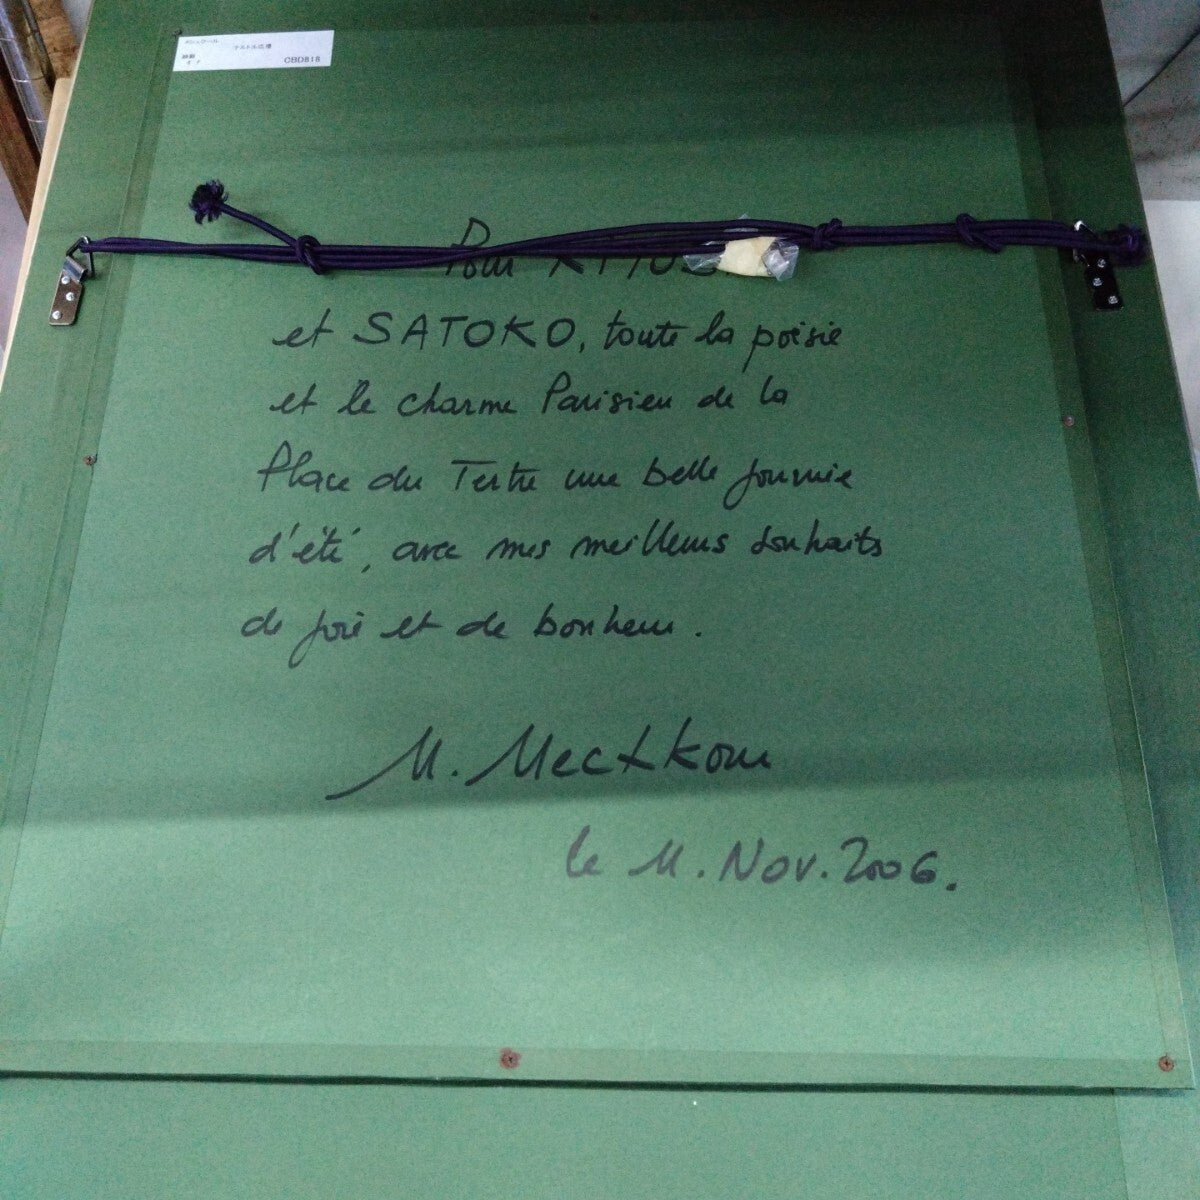 テルトル広場
CBD818
Pour
et SATOKO, toute la poésie
et le charme Parisien de la
Place du Tertre une belle journée
d'été, avec mes meilleurs souhaits
de joie et de bonheur.
M.
le 11. Nov. 2006.